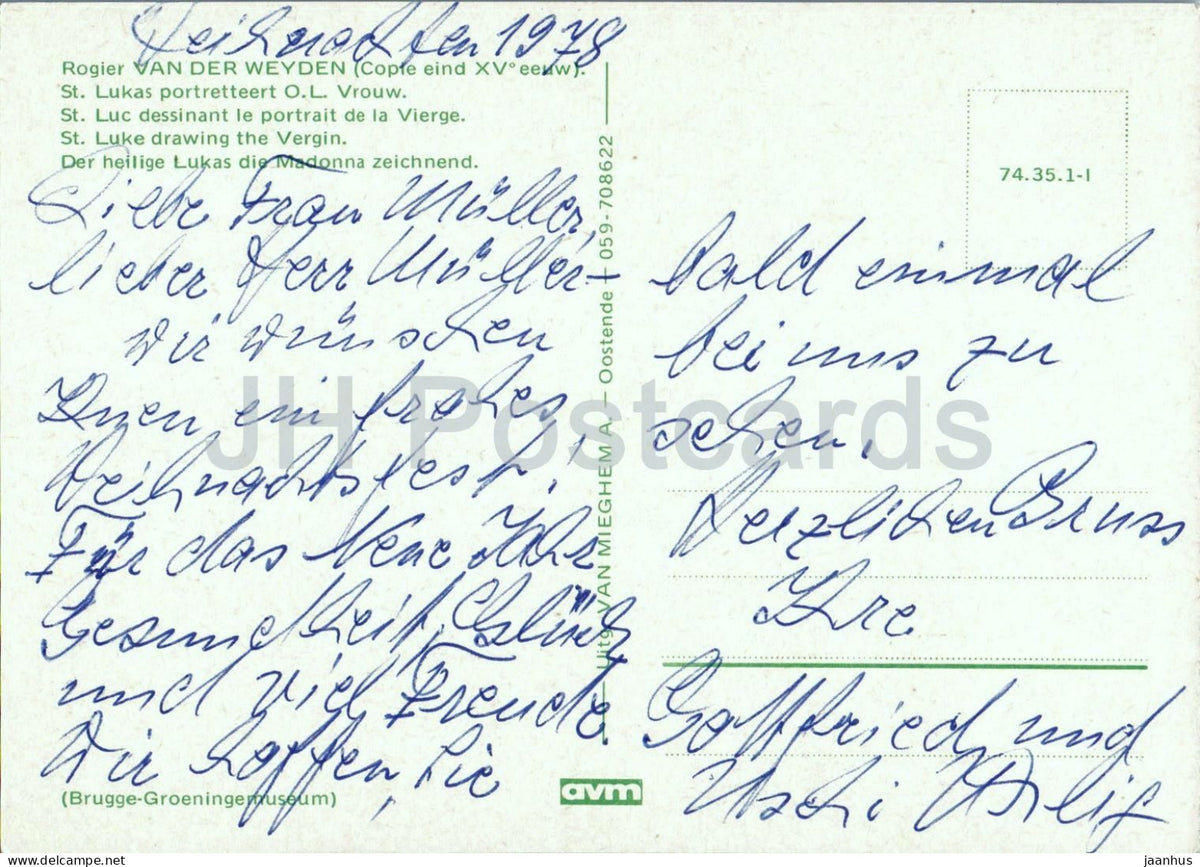 Weihnachten 1978
Rogier VAN DER WEYDEN (Copie eind XV° eeuw).
St. Lukas portretteert O.L. Vrouw.
St. Luc dessinant le portrait de la Vierge.
St. Luke drawing the Vergin.
Der heilige Lukas die Madonna zeichnend.
Liebe Frau Müller,
lieber Herr Müller -
wir wünschen
Ihnen ein frohes
Weihnachtsfest!
Für das Neue Jahr
Gesundheit, Glück
und viel Freude.
Wir hoffen, Sie
(Brugge-Groeningemuseum)
Uitg. VAN MIEGHEM A. — Oostende — 059-708622
avm
74.35.1-I
bald einmal
bei uns zu
sehen.
Herzlichen Gruss
Ihre
Gottfried und
Uschi
JH Postcards
hippostcard.com
jaanhus